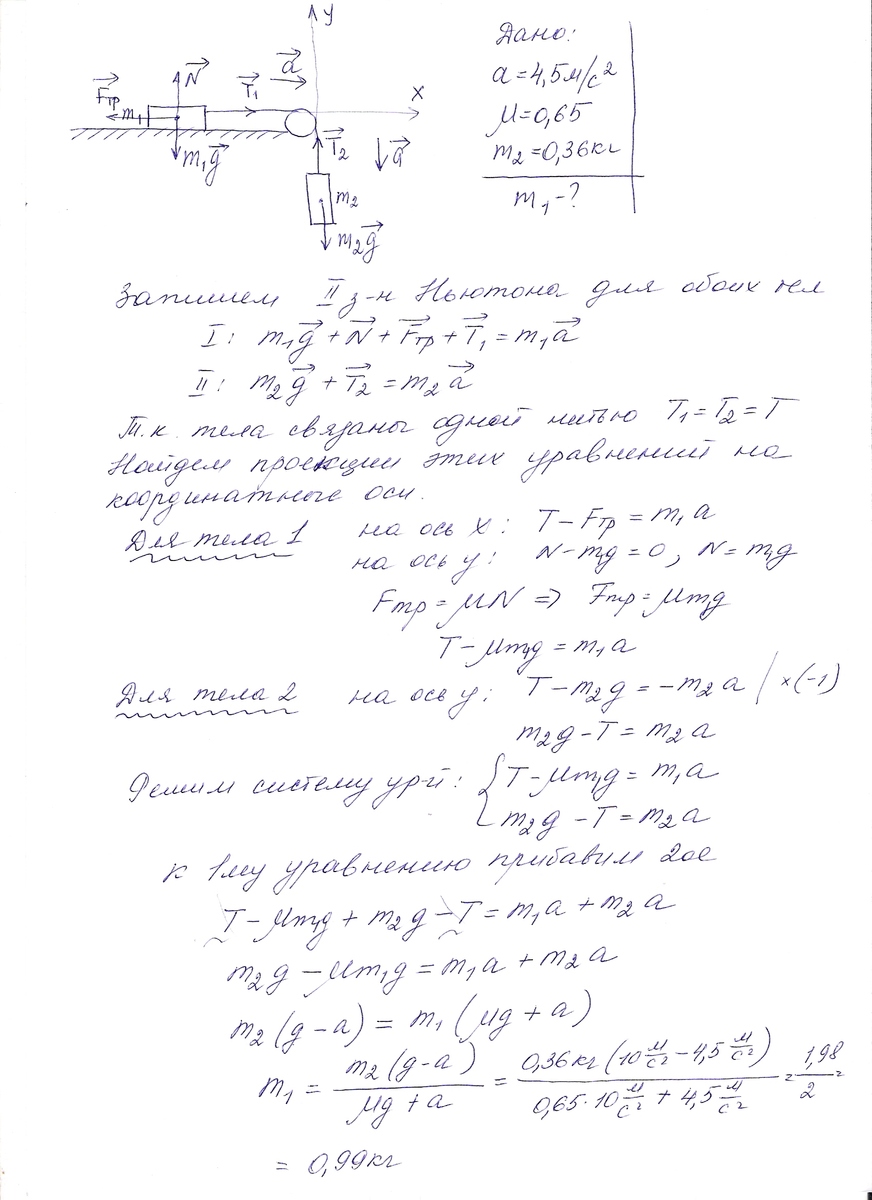 y
N
a
Fтр
m₁
T₁
x
m₁g
T₂
a
m₂
m₂g
Дано:
a=4,5м/с²
μ=0,65
m₂=0,36кг
m₁-?
Запишем II з-н Ньютона для обоих тел
I: m₁g + N + Fтр + T₁ = m₁a
II: m₂g + T₂ = m₂a
Т.к. тела связаны одной нитью T₁=T₂=T
Найдем проекции этих уравнений на
координатные оси.
Для тела 1 на ось x: T-Fтр = m₁a
на ось y: N-m₁g=0, N=m₁g
Fтр=μN => Fтр=μm₁g
T-μm₁g = m₁a
Для тела 2 на ось y: T-m₂g=-m₂a /×(-1)
m₂g-T=m₂a
Решим систему ур-й: { T-μm₁g = m₁a
m₂g-T=m₂a
к 1му уравнению прибавим 2ое
T-μm₁g+m₂g-T=m₁a+m₂a
m₂g-μm₁g=m₁a+m₂a
m₂(g-a)=m₁(μg+a)
m₁ = m₂(g-a) / μg+a = 0,36кг(10 м/с² - 4,5 м/с²) / 0,65·10 м/с² + 4,5 м/с² = 1,98 / 2 =
= 0,99кг